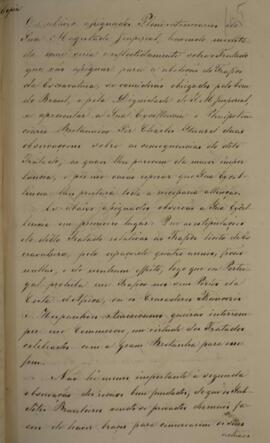 Copia
Os abaixo assignados Plenipotenciarios de
Sua Magestade Imperial, havendo medita-
do mui seria e reflectidamente sobre o Tratado
que vão assignar para a abolição do Trafico
da Escravatura, se considerão obrigados pelo bem
do Brasil, e pela Dignidade de S. M. Imperial,
a apresentar a Sua Excellencia o Plenipoten-
ciario Britannico Sir Charles Stuart duas
observações sobre as consequencias do dito
Tratado, as quaes lhes parecem da maior impor-
tancia, e por não cabe esperar que Sua Excel-
lencia lhes prestará toda a necessaria attenção.
Os abaixo assignados observão a Sua Excel-
lencia em primeiro lugar: Que as estipulações
do dito Tratado relativas ao Trafico licito da Es-
cravatura, pelo espaço de quatro annos, ficão
nullas, e de nenhum effeito, logo que ou Portu-
gal prohiba este Trafico nos seus Portos da
Costa d'Africa, ou os Cruzadores Francezes
e Hespanhóes queirão interrom-
per este Commercio, em virtude dos Tratados
celebrados com a Gram Bretanha para esse
fim.
Não he menos importante a segunda
observação dos
ditos Brasileiros sendo privados
do de haver braços para